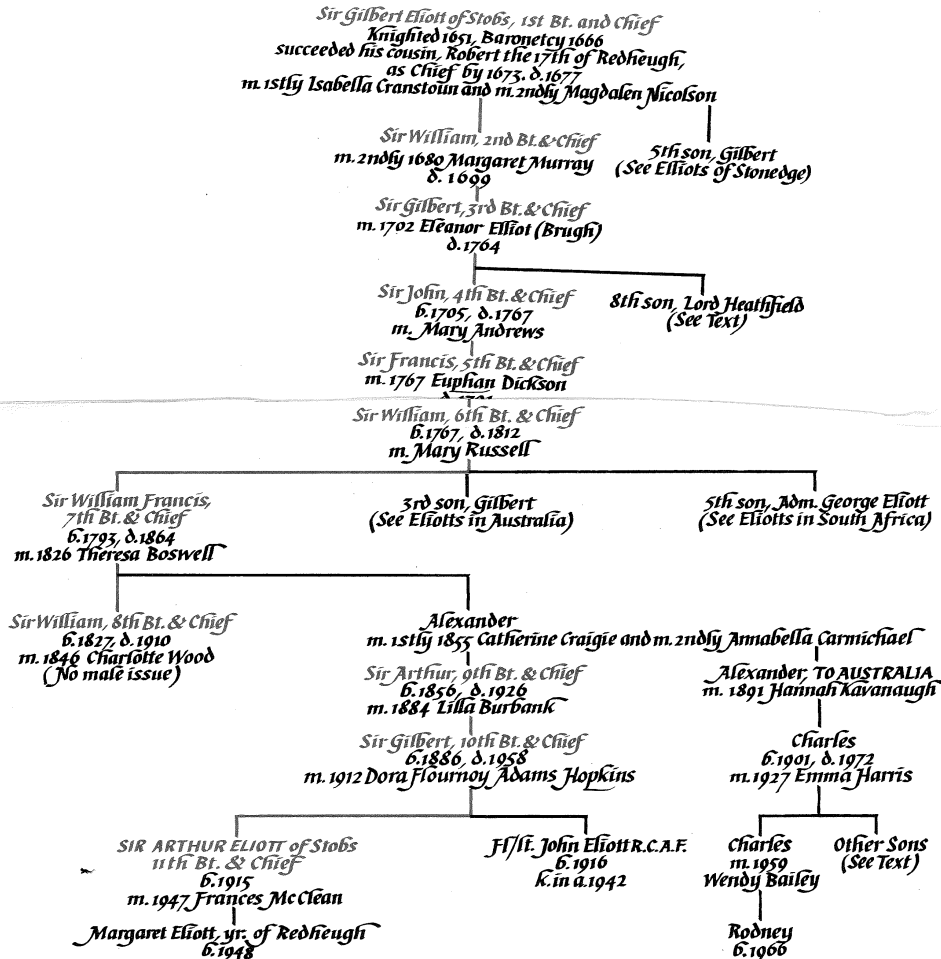 Sir Gilbert Eliott of Stobs, 1st Bt. and Chief
Knighted 1651, Baronetcy 1666
succeeded his cousin, Robert the 17th of Redheugh,
as Chief by 1673. d.1677
m. 1stly Isabella Cranstoun and m. 2ndly Magdalen Nicolson
Sir William, 2nd Bt. & Chief
m. 2ndly 1680 Margaret Murray
d. 1699
5th son, Gilbert
(See Elliots of Stonedge)
Sir Gilbert, 3rd Bt. & Chief
m. 1702 Eleanor Elliot (Brugh)
d.1764
Sir John, 4th Bt. & Chief
b.1705, d.1767
m. Mary Andrews
8th son, Lord Heathfield
(See Text)
Sir Francis, 5th Bt. & Chief
m. 1767 Euphan Dickson
Sir William, 6th Bt. & Chief
b.1767, d.1812
m. Mary Russell
Sir William Francis,
7th Bt. & Chief
b.1793, d.1864
m. 1826 Theresa Boswell
3rd son, Gilbert
(See Eliotts in Australia)
5th son, Adm. George Eliott
(See Eliotts in South Africa)
Sir William, 8th Bt. & Chief
b.1827, d.1910
m. 1846 Charlotte Wood
(No male issue)
Alexander
m. 1stly 1855 Catherine Craigie and m. 2ndly Annabella Carmichael
Sir Arthur, 9th Bt. & Chief
b.1856, d.1926
m. 1884 Lilla Burbank
Alexander, TO AUSTRALIA
m. 1891 Hannah Kavanaugh
Sir Gilbert, 10th Bt. & Chief
b.1886, d.1958
m. 1912 Dora Flournoy Adams Hopkins
Charles
b.1901, d.1972
m. 1927 Emma Harris
SIR ARTHUR ELIOTT of Stobs
11th Bt. & Chief
b.1915
m. 1947 Frances McClean
Fl/Lt. John Eliott R.C.A.F.
b.1916
k. in a. 1942
Charles
m. 1959
Wendy Bailey
Other Sons
(See Text)
Margaret Eliott, yr. of Redheugh
b.1948
Rodney
b.1966